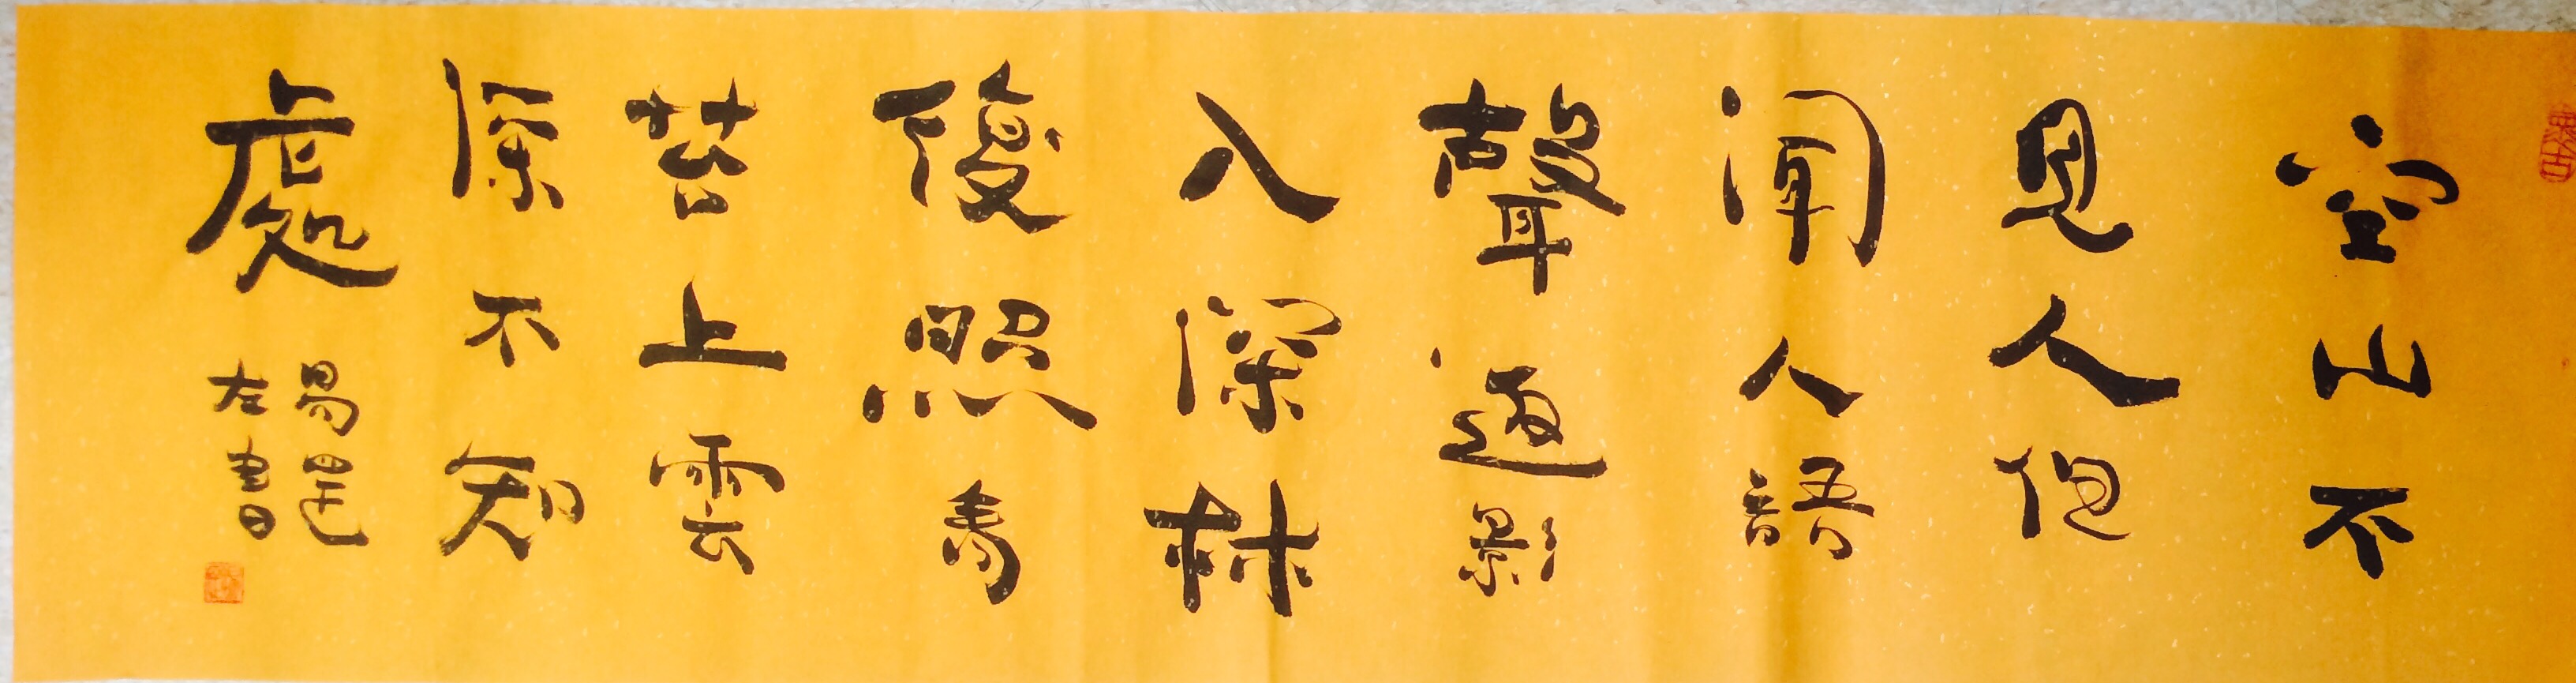 空山不
見人但
聞人語
聲迴影
入深林
復照青
苔上雲
深不知
處
易
左書